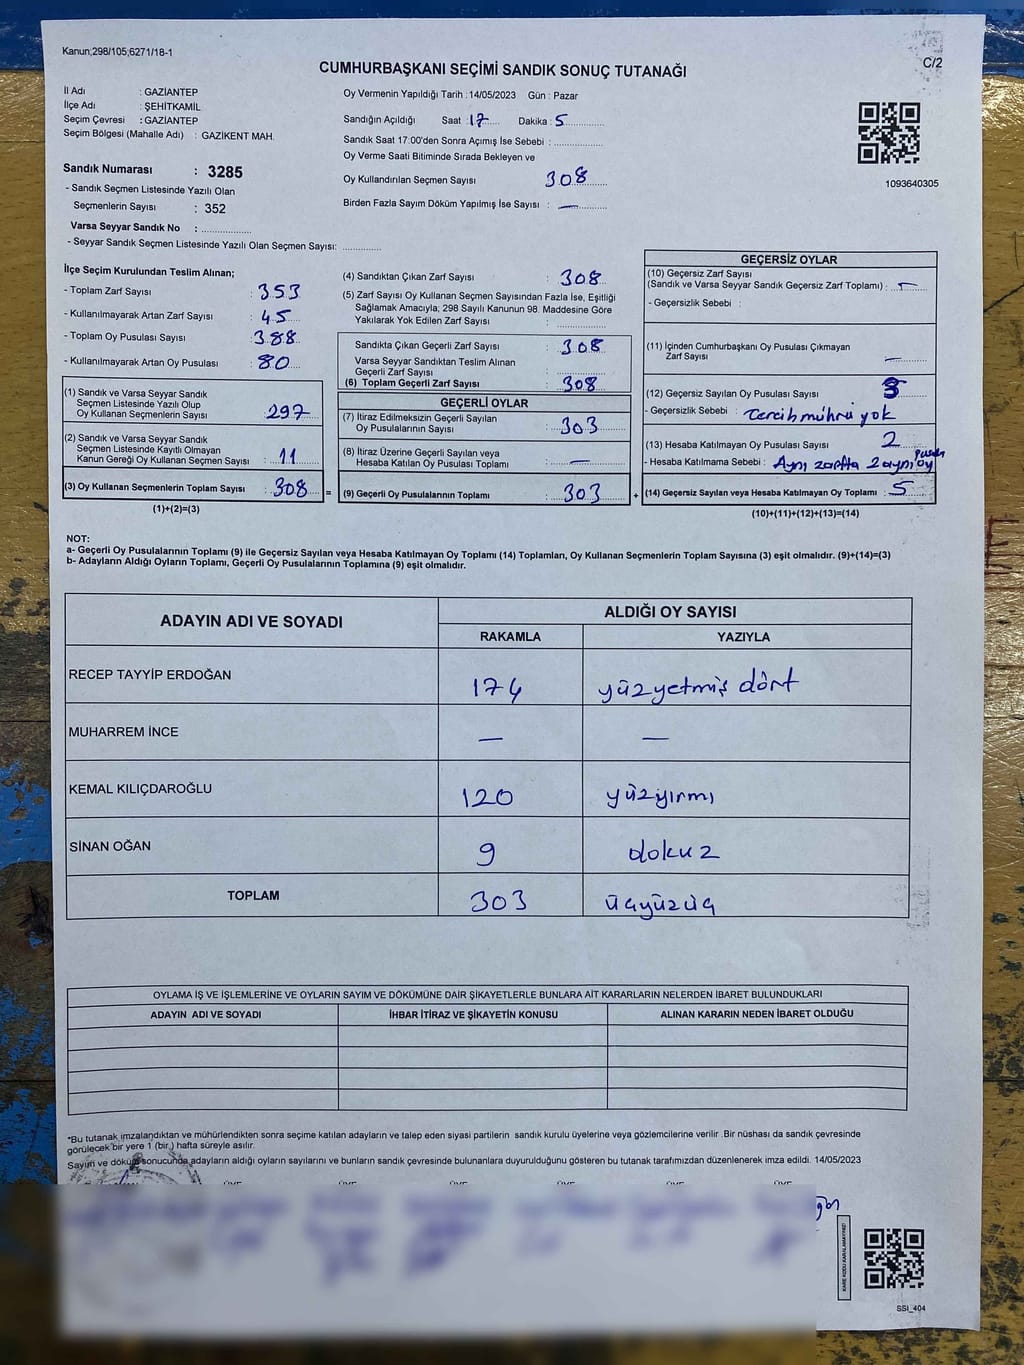 Kanun;298/105;6271/18-1
C/2
CUMHURBAŞKANI SEÇİMİ SANDIK SONUÇ TUTANAĞI
İl Adı : GAZİANTEP
İlçe Adı : ŞEHİTKAMİL
Seçim Çevresi : GAZİANTEP
Seçim Bölgesi (Mahalle Adı) : GAZİKENT MAH.
Sandık Numarası : 3285
- Sandık Seçmen Listesinde Yazılı Olan
Seçmenlerin Sayısı : 352
Varsa Seyyar Sandık No :
- Seyyar Sandık Seçmen Listesinde Yazılı Olan Seçmen Sayısı:
Oy Vermenin Yapıldığı Tarih : 14/05/2023 Gün : Pazar
Sandığın Açıldığı Saat : 17 Dakika : 5
Sandık Saat 17:00'den Sonra Açımış İse Sebebi :
Oy Verme Saati Bitiminde Sırada Bekleyen ve
Oy Kullandırılan Seçmen Sayısı 308
Birden Fazla Sayım Döküm Yapılmış İse Sayısı : —
1093640305
İlçe Seçim Kurulundan Teslim Alınan;
- Toplam Zarf Sayısı : 353
- Kullanılmayarak Artan Zarf Sayısı : 45
- Toplam Oy Pusulası Sayısı : 388
- Kullanılmayarak Artan Oy Pusulası : 80
(1) Sandık ve Varsa Seyyar Sandık
Seçmen Listesinde Yazılı Olup
Oy Kullanan Seçmenlerin Sayısı : 297
(2) Sandık ve Varsa Seyyar Sandık
Seçmen Listesinde Kayıtlı Olmayan
Kanun Gereği Oy Kullanan Seçmen Sayısı : 11
(3) Oy Kullanan Seçmenlerin Toplam Sayısı : 308 =
(1)+(2)=(3)
(4) Sandıktan Çıkan Zarf Sayısı : 308
(5) Zarf Sayısı Oy Kullanan Seçmen Sayısından Fazla İse, Eşitliği
Sağlamak Amacıyla; 298 Sayılı Kanunun 98. Maddesine Göre
Yakılarak Yok Edilen Zarf Sayısı :
Sandıkta Çıkan Geçerli Zarf Sayısı : 308
Varsa Seyyar Sandıktan Teslim Alınan
Geçerli Zarf Sayısı :
(6) Toplam Geçerli Zarf Sayısı : 308
GEÇERLİ OYLAR
(7) İtiraz Edilmeksizin Geçerli Sayılan
Oy Pusulalarının Sayısı : 303
(8) İtiraz Üzerine Geçerli Sayılan veya
Hesaba Katılan Oy Pusulası Toplamı : —
(9) Geçerli Oy Pusulalarının Toplamı : 303 +
GEÇERSİZ OYLAR
(10) Geçersiz Zarf Sayısı
(Sandık ve Varsa Seyyar Sandık Geçersiz Zarf Toplamı) : —
- Geçersizlik Sebebi :
(11) İçinden Cumhurbaşkanı Oy Pusulası Çıkmayan
Zarf Sayısı : —
(12) Geçersiz Sayılan Oy Pusulası Sayısı : 3
- Geçersizlik Sebebi : tercih mührü yok
(13) Hesaba Katılmayan Oy Pusulası Sayısı : 2
- Hesaba Katılmama Sebebi : Aynı zarfta 2 aynı oy
(14) Geçersiz Sayılan veya Hesaba Katılmayan Oy Toplamı : 5
(10)+(11)+(12)+(13)=(14)
NOT:
a- Geçerli Oy Pusulalarının Toplamı (9) ile Geçersiz Sayılan veya Hesaba Katılmayan Oy Toplamı (14) Toplamları, Oy Kullanan Seçmenlerin Toplam Sayısına (3) eşit olmalıdır. (9)+(14)=(3)
b- Adayların Aldığı Oyların Toplamı, Geçerli Oy Pusulalarının Toplamına (9) eşit olmalıdır.
ADAYIN ADI VE SOYADI ALDIĞI OY SAYISI
RAKAMLA YAZIYLA
RECEP TAYYİP ERDOĞAN 174 yüzyetmiş dört
MUHARREM İNCE — —
KEMAL KILIÇDAROĞLU 120 yüzyırmı
SİNAN OĞAN 9 dokuz
TOPLAM 303 üçyüzüç
OYLAMA İŞ VE İŞLEMLERİNE VE OYLARIN SAYIM VE DÖKÜMÜNE DAİR ŞİKAYETLERLE BUNLARA AİT KARARLARIN NELERDEN İBARET BULUNDUKLARI
ADAYIN ADI VE SOYADI İHBAR İTİRAZ VE ŞİKAYETİN KONUSU ALINAN KARARIN NEDEN İBARET OLDUĞU
*Bu tutanak imzalandıktan ve mühürlendikten sonra seçime katılan adayların ve talep eden siyasi partilerin sandık kurulu üyelerine veya gözlemcilerine verilir .Bir nüshası da sandık çevresinde
görülecek bir yere 1 (bir.) hafta süreyle asılır.
Sayım ve döküm sonucunda adayların aldığı oyların sayılarını ve bunların sandık çevresinde bulunanlara duyurulduğunu gösteren bu tutanak tarafımızdan düzenlenerek imza edildi. 14/05/2023
KARE KODU KARALAMAYINIZ!
SSI_404